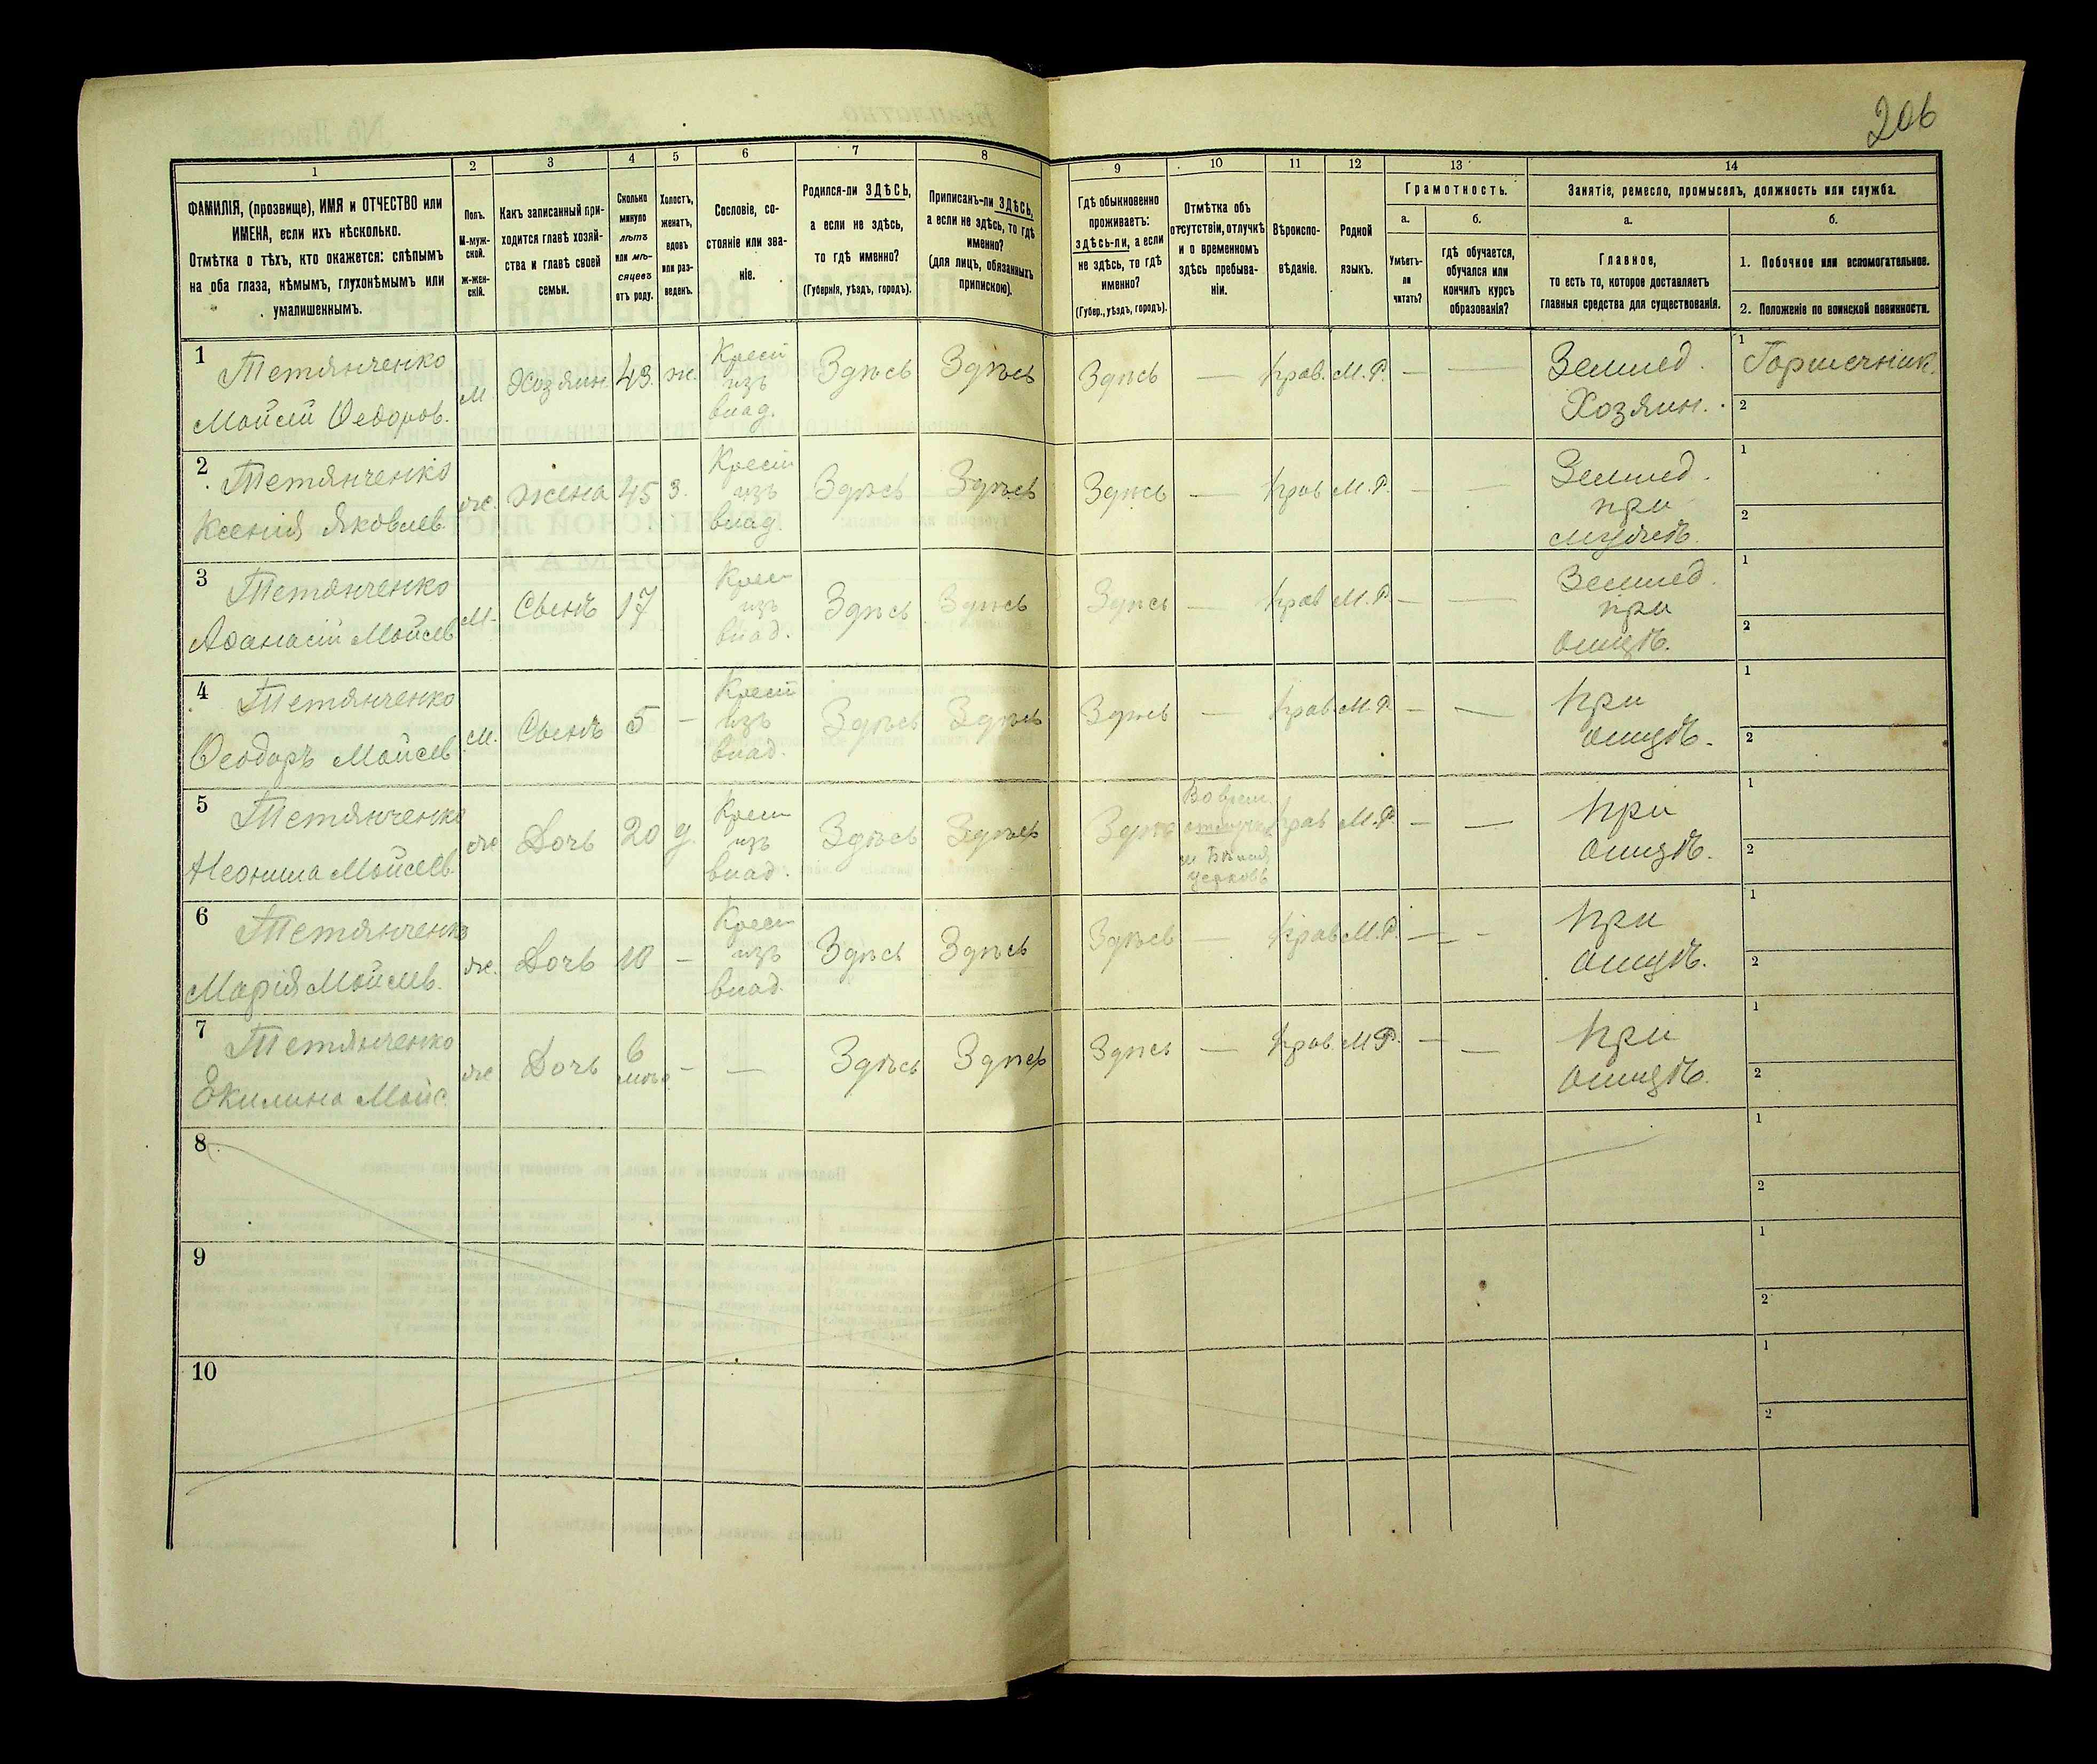 206
1 2 3 4 5 6 7 8 9 10 11 12 13 14
ФАМИЛІЯ, (прозвище), ИМЯ и ОТЧЕСТВО или
ИМЕНА, если ихъ нѣсколько.
Отмѣтка о тѣхъ, кто окажется: слѣпымъ
на оба глаза, нѣмымъ, глухонѣмымъ или
умалишеннымъ.
Полъ.
М-муж-
ской.
Ж-жен-
скій.
Какъ записанный при-
ходится главѣ хозяй-
ства и главѣ своей
семьи.
Сколько
минуло
лѣтъ
или мѣ-
сяцевъ
отъ роду.
Холостъ,
женатъ,
вдовъ
или раз-
веденъ.
Сословіе, со-
стояніе или зва-
ніе.
Родился-ли ЗДѢСЬ,
а если не здѣсь,
то гдѣ именно?
(Губернія, уѣздъ, городъ).
Приписанъ-ли ЗДѢСЬ,
а если не здѣсь, то гдѣ
именно?
(для лицъ, обязанныхъ
припискою).
Гдѣ обыкновенно
проживаетъ:
здѣсь-ли, а если
не здѣсь, то гдѣ
именно?
(Губер., уѣздъ, городъ).
Отмѣтка объ
отсутствіи, отлучкѣ
и о временномъ
здѣсь пребыва-
ніи.
Вѣроиспо-
вѣданіе.
Родной
языкъ.
Грамотность.
а.
Умѣетъ-
ли
читать?
б.
гдѣ обучается,
обучался или
кончилъ курсъ
образованія?
Занятіе, ремесло, промыселъ, должность или служба.
а.
Главное,
то есть то, которое доставляетъ
главныя средства для существованія.
б.
1. Побочное или вспомогательное.
2. Положеніе по воинской повинности.
1 Тетянченко
Мойсей Ѳедоров.
м. Хозяин. 43. ж.
Крест
изъ
влад.
Здѣсь Здѣсь Здѣсь — прав. М.Р. — —
Землед.
Хозяин.
1 Горшечник.
2
2 Тетянченко
Ксенія Яковлев.
ж. жена 45 з.
Крест
изъ
влад.
Здѣсь Здѣсь Здѣсь — прав М.Р. — —
Землед.
при
мужѣ.
1
2
3 Тетянченко
Аѳанасій Мойсев
м. Сынъ 17
Крест
изъ
влад.
Здѣсь Здѣсь Здѣсь — прав М.Р. — —
Землед.
при
отцѣ.
1
2
4 Тетянченко
Ѳеодоръ Мойсев
м. Сынъ 5 —
Крест
изъ
влад.
Здѣсь Здѣсь Здѣсь — прав. М.Р. — —
при
отцѣ.
1
2
5 Тетянченко
Мойсев.
ж Дочь 20 д.
Крест
изъ
влад.
Здѣсь Здѣсь Здѣсь
Во врем.
отлучкѣ
церковь
прав М.Р. — —
при
отцѣ.
1
2
6 Тетянченко
Марія Мойсев.
ж. Дочь 10 —
Крест
изъ
влад.
Здѣсь Здѣсь Здѣсь — прав М.Р. — —
при
отцѣ.
1
2
7 Тетянченко
Екилина Мойс.
ж Дочь 6
мѣс. — —
Здѣсь Здѣсь Здѣсь — прав. М.Р. — —
при
отцѣ.
1
2
8
1
2
9
1
2
10
1
2